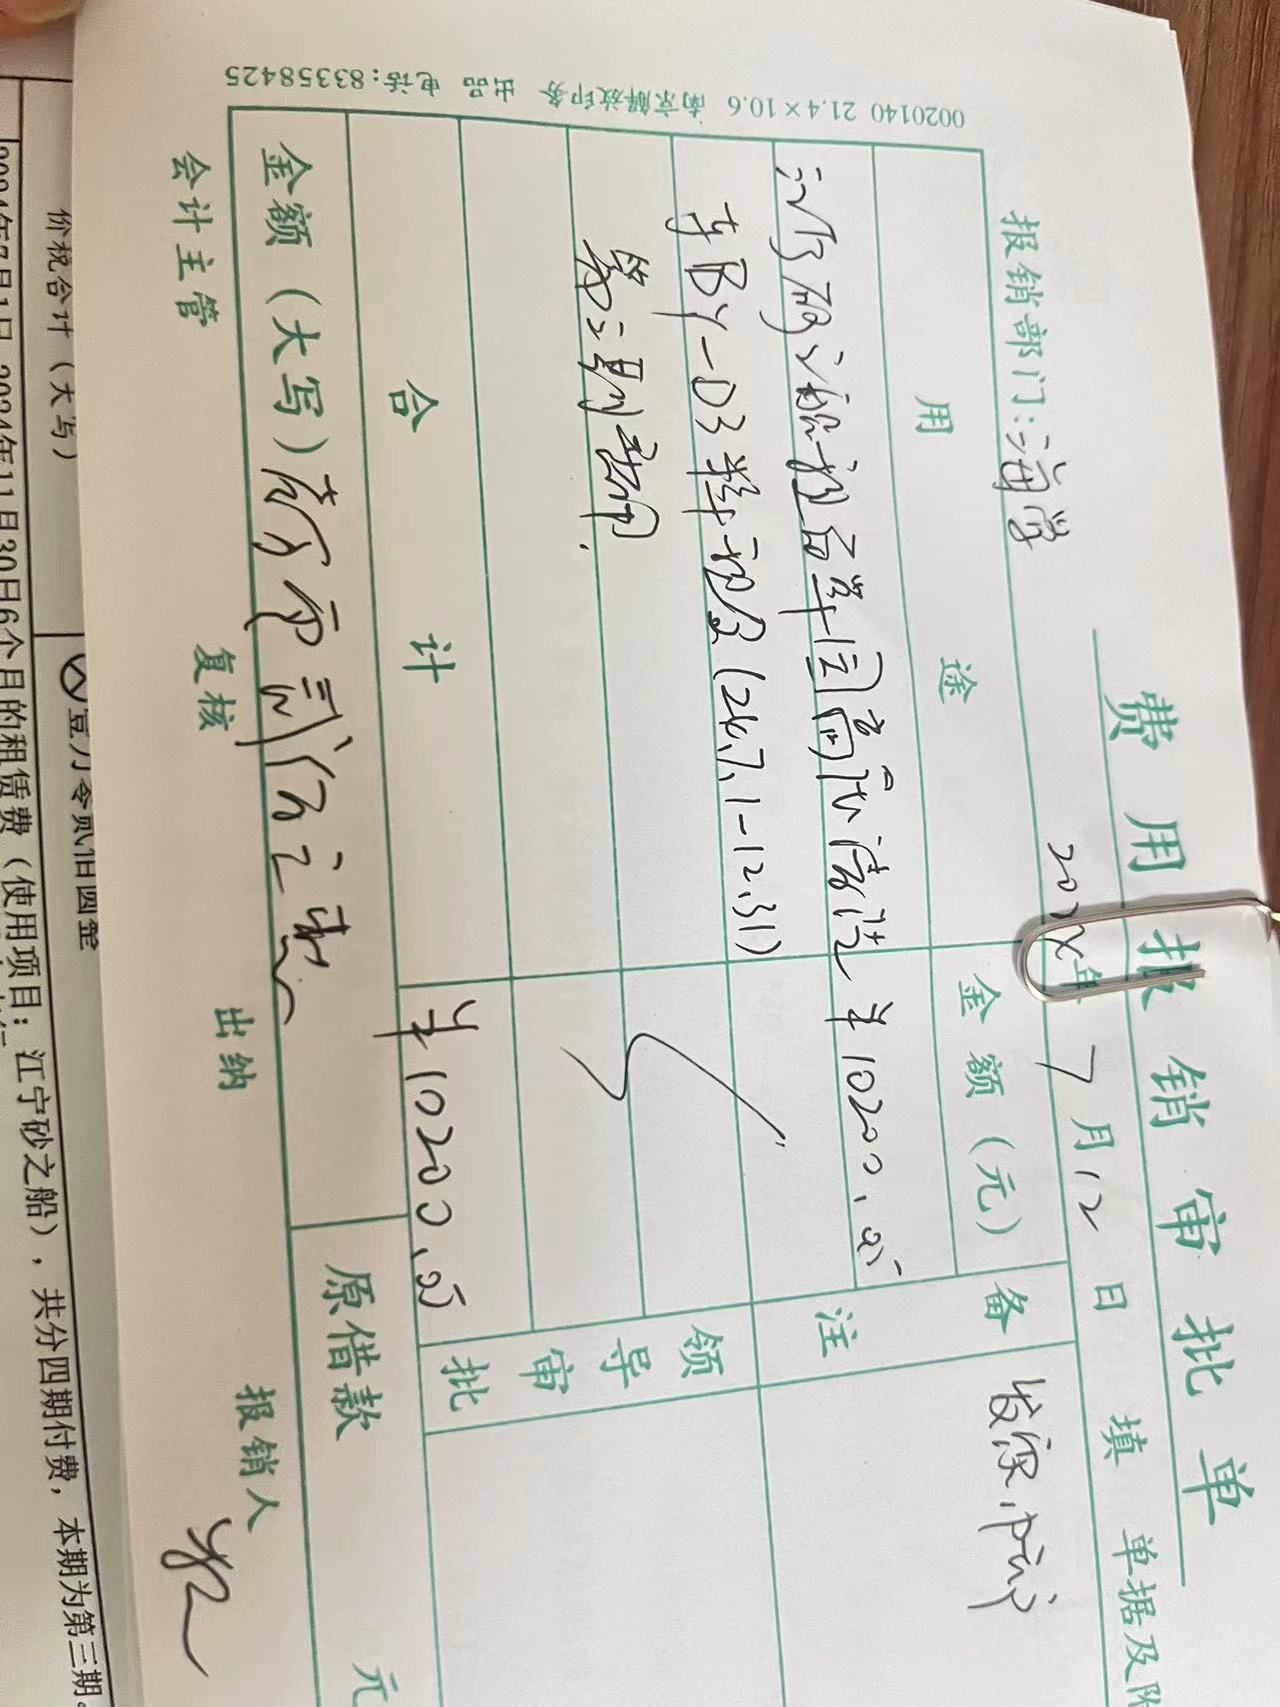 费用报销审批单
报销部门:海学
2024年7月12日填
单据及附
用途
金额(元)
备
注
江宁砂之船租 高 ¥10200.00
车BY-D3 租金(24.7.1-12.31)
第三期费用
合计
¥10200.00
领
导
审
批
金额(大写)壹万零贰佰元整
原借款
元
会计主管
复核
出纳
报销人
0020140 21.4×10.6 南京解放印务 出品 电话:83358425
价税合计(大写)
壹万零贰佰圆整
2024年7月1日-2024年11月30日6个月的租赁费(使用项目:江宁砂之船),共分四期付费,本期为第三期。